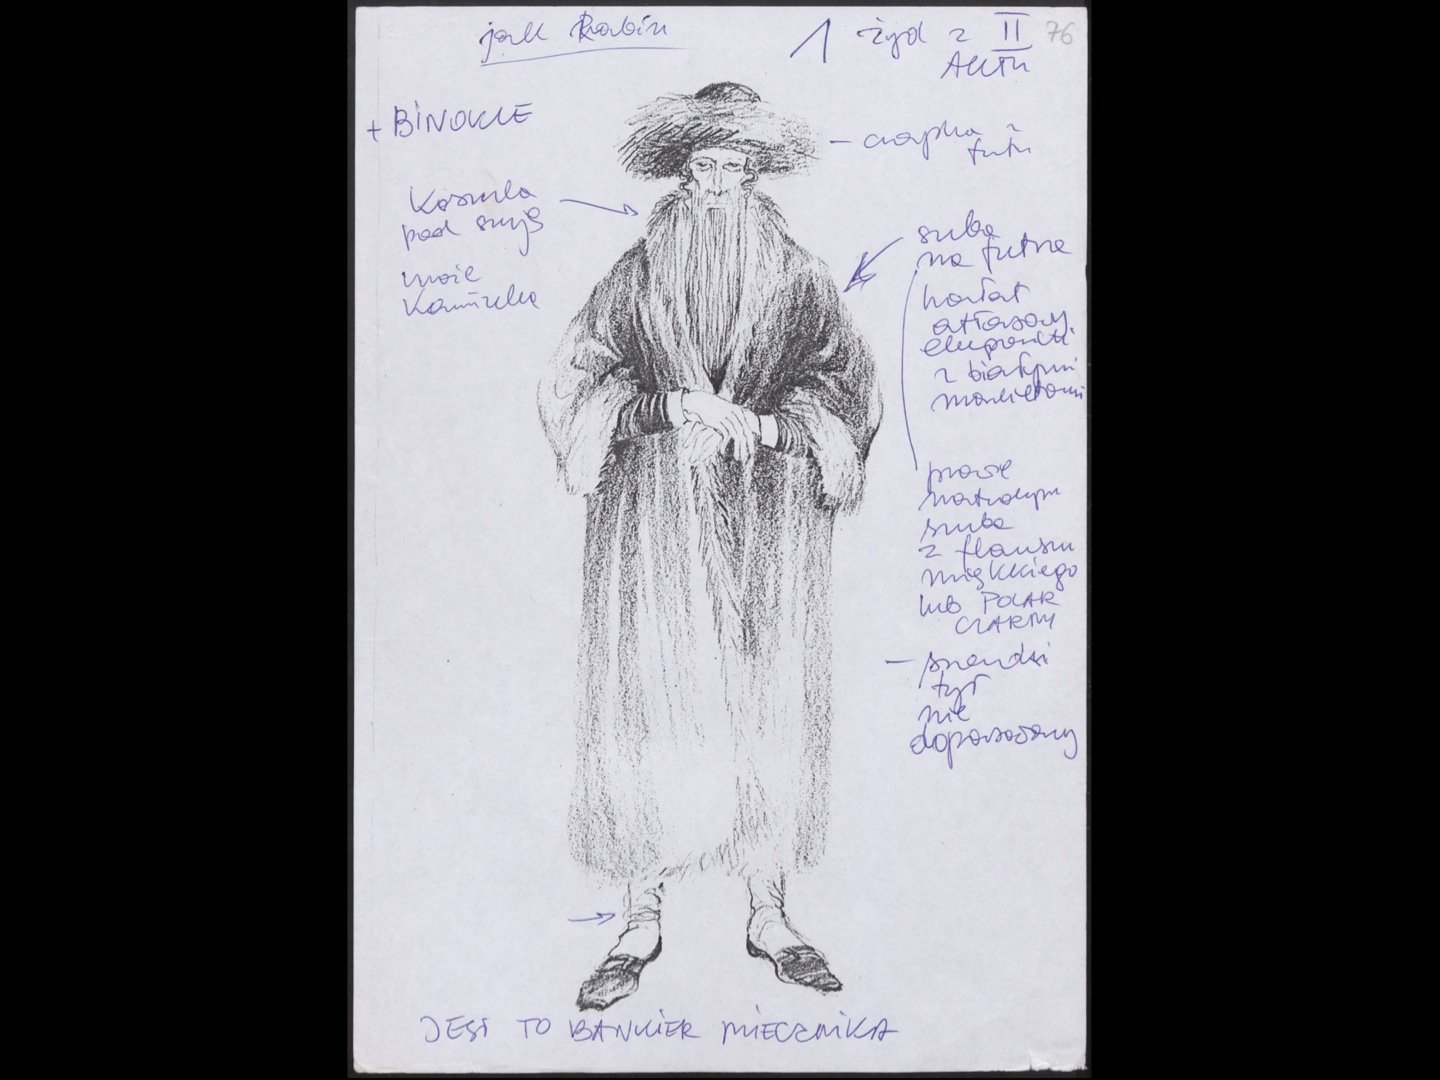 jak Rabin
1 żyd z II 76
AKTU
+ BINOKLE
czapka z
futr
Koszula
pod szyję
może
Kamizelka
szuba
na futrze
hałat
atłasowy
elegancki
z białymi
mankietami
prawie
szuba
z flauszu
miękkiego
lub POLAR
CZARNY
tył
nie
JEST TO BANKIER MIECZNIKA